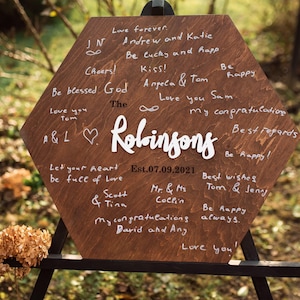 Love forever
J N
Andrew and Katie
∞
Be Lucky and happ
Cheers!
Kiss!
Be happy
Be blessed God
Angela & Tom
Love you Sam
The
∞
my congratulations
Love you
Tom
Robinsons
Best regards
A & L ♡
Be happy!
Est.07.09.2021
Let your heart
be full of Love
Best wishes
Tom & Jenny
Mr. & Ms
Scott
& Tina
Be happy
always.
my congratulations
David and Any
Love you!